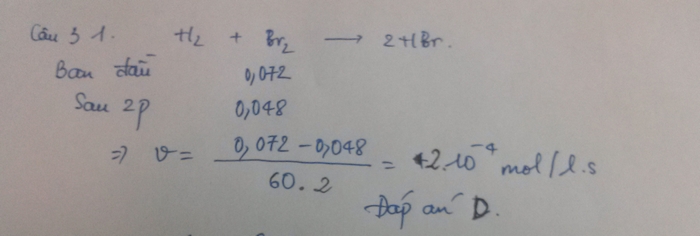 Câu 31. H₂ + Br₂ ⟶ 2HBr.
Ban đầu 0,072
Sau 2p 0,048
⇒ v = (0,072 - 0,048) / (60.2) = 2.10⁻⁴ mol/l.s
Đáp án D.